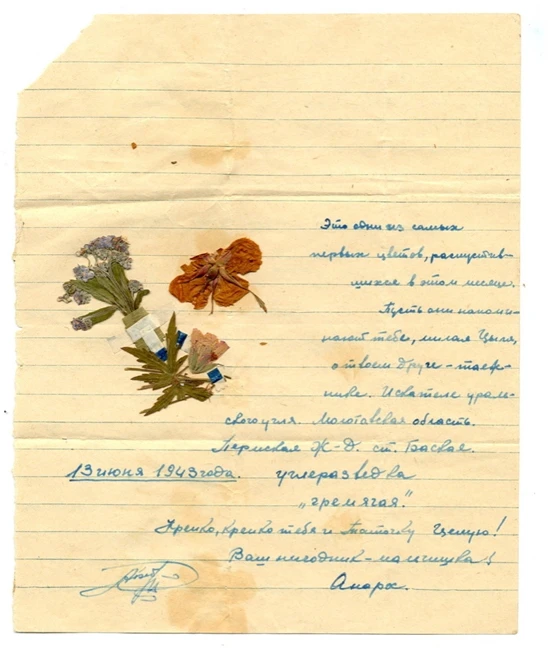 Это одни из самых
первых цветов, распустив-
шихся в этом месяце.
Пусть они напоми-
нают тебе, милая Цыля,
о твоем друге - таеж-
нике. Искателе ураль-
ского угля. Молотовская область.
Пермская Ж-Д. ст. Баская.
13 июня 1943 года. углеразведка
„гремячая".
Крепко, крепко тебя и Таточку Целую!
Ваш негодник - мальчишка!